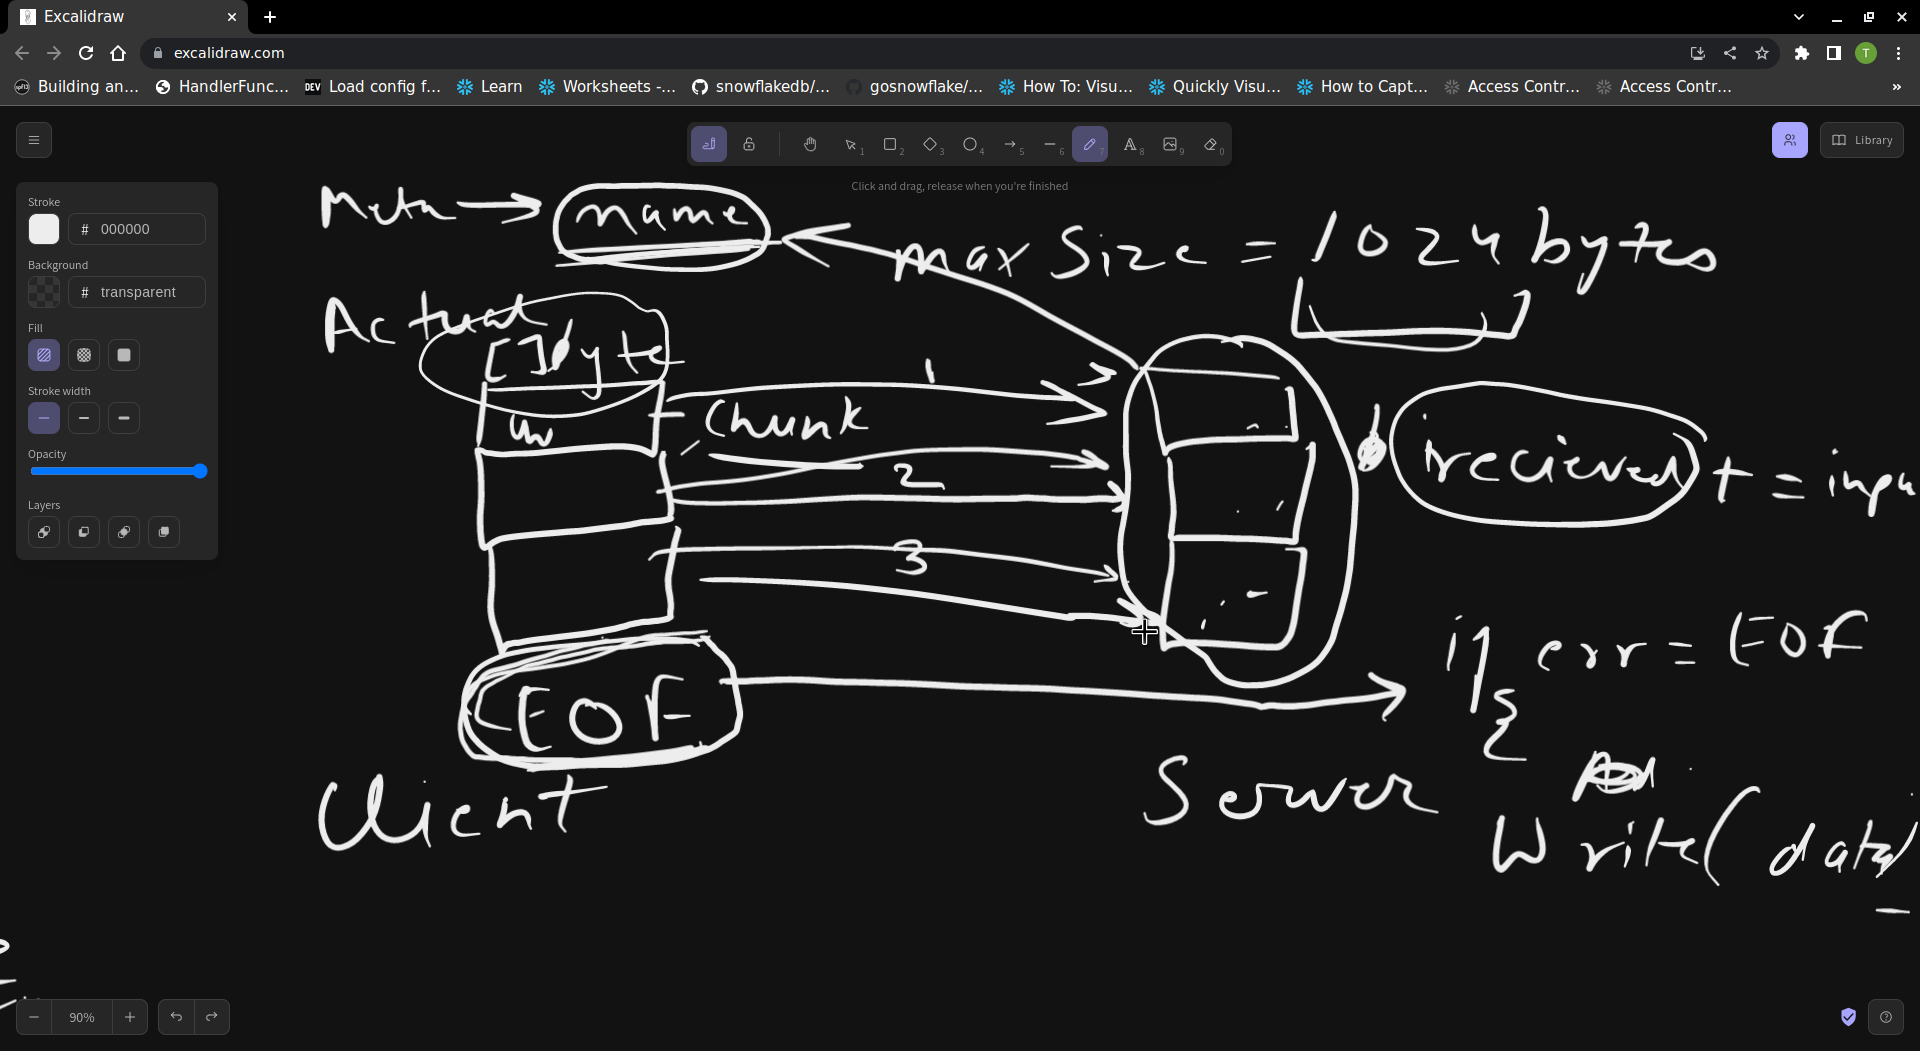 Excalidraw
excalidraw.com
T
Building an...
HandlerFunc...
DEV
Load config f...
Learn
Worksheets -...
snowflakedb/...
gosnowflake/...
How To: Visu...
Quickly Visu...
How to Capt...
Access Contr...
Access Contr...
»
1
2
3
4
5
6
7
8
9
0
Library
Click and drag, release when you're finished
Stroke
# 000000
Background
# transparent
Fill
Stroke width
Opacity
Layers
Meta → name
max Size = 1024 bytes
Actual
[]byte
1
Chunk
2
3
recieved + = inpu
if err = EOF
{
EOF
Client
Server
Write( data)
90%